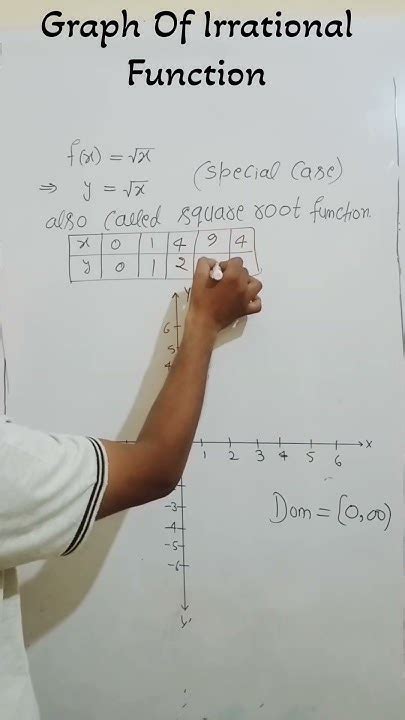 Graph Of Irrational
Function
f(x) = √x
(special case)
⇒ y = √x
also called square root function
x 0 1 4 9 4
y 0 1 2
Y
6
5
4
1 2 3 4 5 6 X
Dom = [0,∞)
-3
-4
-5
-6
Y'